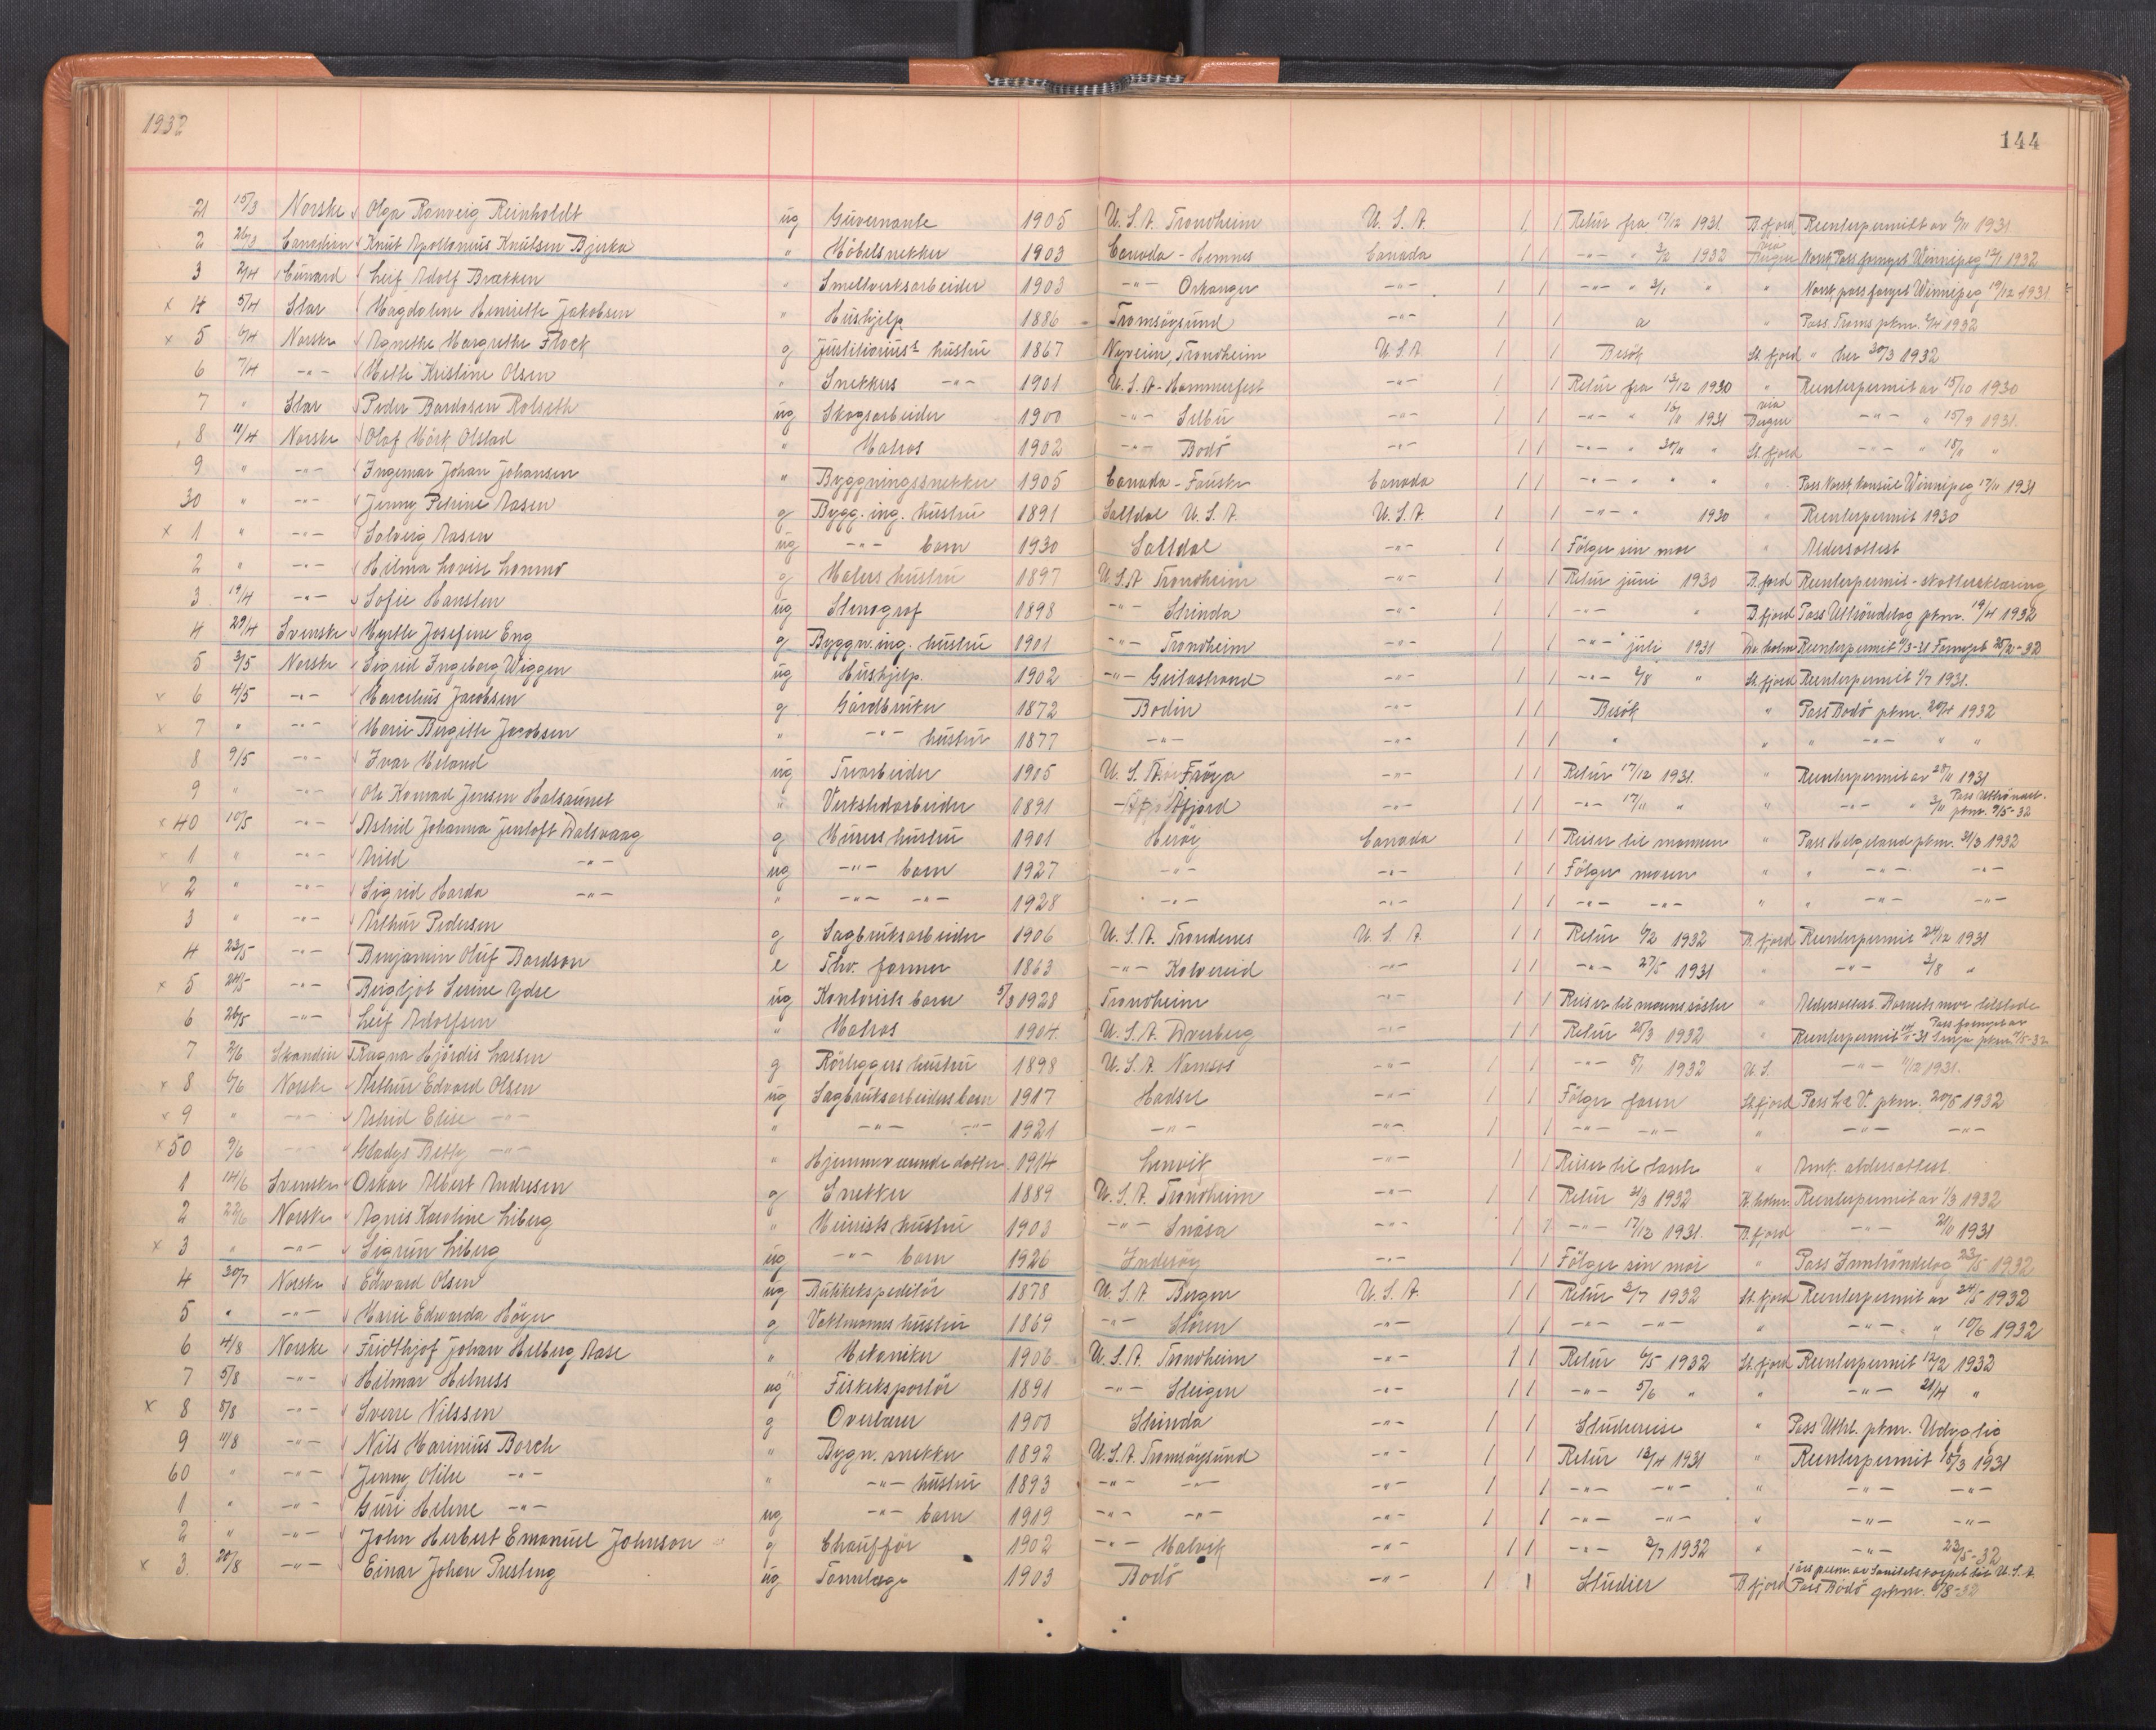 1932
144
21 15/3 Norske Olga Ranveig Reinholdt ug Guvernante 1905 U.S.A. Trondheim U.S.A. 1 1 Retur fra 17/12 1931 B.fjord Reenterpermitt av 6/11 1931
2 26/3 Canadian Knut Apollonius Knutsen Bjerka " Möbelsnekker 1903 Canada - Hemnes Canada 1 1 -"- " 3/2 1932 via Bergen Norsk Pass fornyet Winnipeg 12/1 1932
3 2/4 Cunard Leif Adolf Brækken " Smelteverksarbeider 1903 -"- Orkanger -"- 1 1 -"- " 2/1 " " Norsk pass fornyet Winnipeg 19/12 1931
x 4 5/4 Star Magdalene Henriette Jakobsen " Hushjelp 1886 Tromsöysund -"- 1 1 a " Pass Troms pkm. 2/4 1932
x 5 6/4 Norske Agnethe Margrethe Flock g justitiarius's hustru 1867 Nyveien, Trondheim U.S.A. 1 1 Besök St.fjord " her 30/3 1932
6 7/4 -"- Mette Kristine Olsen " Snekkers -"- 1901 U.S.A - Hammerfest -"- 1 1 Retur fra 13/12 1930 " Reenterpermit av 15/10 1930
7 " Star Peder Bardosen Rolseth ug Skogsarbeider 1900 -"- Selbu -"- 1 1 -"- " 16/11 1931 via Bergen -"- " 15/9 1931.
8 11/4 Norske Olaf Mörk Olstad " Matros 1902 -"- Bodö -"- 1 1 -"- " 30/11 " St.fjord -"- " 18/11 "
9 " -"- Ingemar Johan Johansen " Byggningssnekker 1905 Canada - Fauske Canada 1 1 -"- " " " " Pass Norsk Konsul Winnipeg 17/11 1931
30 " -"- Jenny Petrine Aasen g Bygg. ing. hustru 1891 Saltdal U.S.A. U.S.A. 1 1 -"- " 1930 " Reenterpermit 1930
x 1 " -"- Solveig Aasen ug -"- barn 1930 Saltdal -"- 1 1 Fölger sin mor " Aldersattest
2 " -"- Hilma Lovise Lonmo g Malers hustru 1897 U.S.A Trondheim -"- 1 1 Retur juni 1930 B.fjord Reenterpermit - skatteerklæring
3 19/4 -"- Sofie Hansten ug Stenograf 1898 -"- Strinda -"- 1 1 -"- " B.fjord Pass Uttröndelag pkm. 19/4 1932
4 29/4 Svenske Myrtle Josefine Eng g Byggn. ing. hustru 1901 -"- Trondheim -"- 1 1 -"- " juli 1931 Dr.holm Reenterpermit 11/3-31 Fornyet 25/2-32
5 3/5 Norske Sigrid Ingeborg Wiggen ug Hushjelp. 1902 -"- Geitastrand -"- 1 1 -"- 2/8 " St.fjord Reenterpermit 1/7 1931.
x 6 4/5 -"- Marcelius Jacobsen g Gårdbruker 1872 Bodin -"- 1 1 Besök " Pass Bodö pkm. 20/4 1932
x 7 " -"- Marie Birgitte Jacobsen " -"- hustru 1877 -"- -"- 1 1 " " " -"- " "
8 9/5 -"- Ivar Meland ug Trearbeider 1905 U.S.A. Fröya -"- 1 1 Retur 17/12 1931. " Reenterpermit av 28/11 1931
9 " -"- Ole Konrad Jensen Halsaunet " Verkstedarbeider 1891 Åfjord -"- 1 1 -"- 17/11 " " -"- " 3/11 Pass Uttröndel. pkm. 9/5-32
x 40 10/5 -"- Astrid Johanna Jentoft Dalsvaag g Murers hustru 1901 Heröy Canada 1 1 Reiser til mannen " Pass Helgeland pkm. 31/3 1932
x 1 " -"- Arild -"- ug -"- barn 1927 -"- -"- 1 1 Fölger moren " " -"- -"-
x 2 " -"- Sigrid Harda -"- " -"- -"- 1928 -"- -"- 1 1 -"- -"- " " -"- -"-
3 " -"- Arthur Pedersen g Sagbruksarbeider 1906 U.S.A. Trondenes U.S.A. 1 1 Retur 6/2 1932 B.fjord Reenterpermit 24/12 1931
4 23/5 -"- Benjamin Oluf Bardson e Thv. farmer 1863 -"- Kolvereid -"- 1 1 -"- 27/5 1931 " -"- 3/8 "
x 5 24/5 -"- Bergljot Serine Ydse ug Kontorists barn 5/3 1928 Trondheim -"- 1 1 Reiser til morens söster " Aldersattest. Barnets mor tilstede
6 26/5 -"- Leif Adolfsen " Matros 1904 U.S.A. Dverberg -"- 1 1 Retur 25/3 1932 " Reenterpermit Pass fornyet av Senja pkm.
7 2/6 Skandin Ragna Hjördis Larsen g Rörleggers hustru 1898 U.S.A. Namsos -"- 1 1 -"- 8/1 1932 U.S. -"- 11/12 1931.
x 8 6/6 Norske Arthur Edvard Olsen ug Sagbruksarbeiders barn 1917 Hadsel -"- 1 1 Fölger faren St.fjord Pass L & V. pkm. 20/5 1932
x 9 " -"- Astrid Elise -"- " -"- -"- 1921 -"- -"- 1 1 -"- -"- " -"- -"-
x 50 9/6 -"- Gladys Betty -"- " Hjemmeværende datter 1914 Lenvik -"- 1 1 Reiser til tante " Amk. aldersattest.
1 14/6 Svenske Oskar Albert Andresen g Snekker 1889 U.S.A. Trondheim -"- 1 1 Retur 31/3 1932 K.holm Reenterpermit av 1/3 1932
2 22/6 Norske Agnes Karoline Liberg " Meierists hustru 1903 -"- Snåsa -"- 1 1 -"- 17/12 1931. B.fjord -"- 21/11 1931
x 3 " -"- Sigrun Liberg ug -"- barn 1926 Inderöy -"- 1 1 Fölger sin mor " Pass Inntröndelag 23/5 1932
4 30/7 Norske Edward Olsen ug Butikekspeditör 1878 U.S.A Bergen U.S.A. 1 1 Retur 2/7 1932 St.fjord Reenterpermit av 24/5 1932
5 " -"- Marie Edwarda Höyer g Vaktmanns hustru 1869 -"- Stören -"- 1 1 -"- -"- " -"- " 10/6 1932
6 4/8 Norske Fridthjof Johan Helberg Aase " Mekaniker 1906 U.S.A. Trondheim -"- 1 1 Retur 6/5 1932 St.fjord Reenterpermit 12/2 1932
7 5/8 -"- Hilmar Helness ug Fiskeksportör 1891 -"- Steigen -"- 1 1 -"- 5/6 " " -"- 21/4 "
x 8 8/8 -"- Sverre Nilssen g Overlærer 1900 Strinda -"- 1 1 Studiereise " Pass Uttrl. pkm. Udygtig
9 11/8 -"- Nils Marinius Borch " Bygn. snekker 1892 U.S.A. Tromsöysund -"- 1 1 Retur 12/4 1931 " Reenterpermit 15/3 1931
60 " -"- Jenny Otilie -"- " -"- hustru 1893 -"- -"- -"- 1 1 -"- -"- " -"- -"-
1 " -"- Guri Helene -"- ug -"- barn 1919 -"- -"- -"- 1 1 -"- -"- " -"- -"-
2 " -"- John Herbert Emanuel Johnson g Chaufför 1902 -"- Malvik -"- 1 1 -"- 2/7 1932 " -"- 23/5-32
x 3. 20/8 -"- Einar Johan Presteng ug Tannlege 1903 Bodö -"- 1 1 Studier B.fjord Pass Bodö pkm. 6/8-32